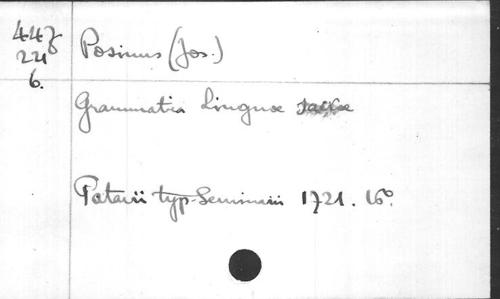 447
221
6.
Posinus (Jos.)
Grammatica Linguæ
Patavii typ. Seminarii 1721. 16º.